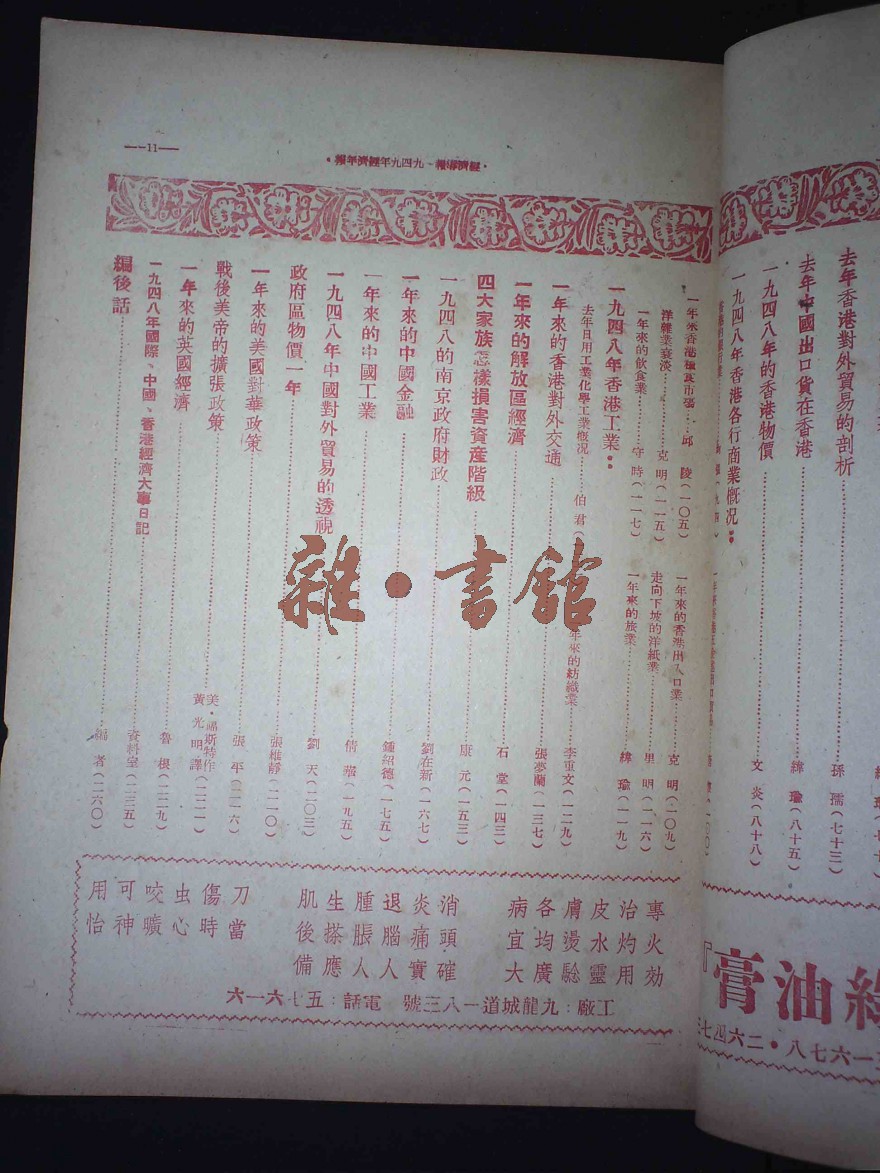 去年香港對外貿易的剖析 孫孺(七十三)
去年中國出口貨在香港 緯瑜(八十五)
一九四八年的香港物價 文炎(八十八)
一九四八年香港各行商業概況:
膏油
二六四七三
八七六一
·經濟導報·一九四九年經濟年報·
—11—
邱陵(一〇五)
一年來的香港出入口業 克明(一〇九)
洋雜業衰淡 克明(一一五)
走向下坡的洋紙業 里明(一一六)
一年來的飲食業 守時(一一七)
一年來的旅業 緯瑜(一一九)
一九四八年香港工業:
去年日用工業化學工業概况 伯君
年來的紡織業 李重文(一二九)
一年來的香港對外交通 張夢蘭(一三七)
一年來的解放區經濟 石堂(一四三)
四大家族怎樣損害資産階級 康元(一五三)
一九四八的南京政府財政 劉在新(一六七)
一年來的中國金融 鍾紹德(一七五)
一年來的中國工業 倩華(一九五)
一九四八年中國對外貿易的透視 劉天(二〇三)
政府區物價一年 張維靜(二一〇)
一年來的美國對華政策 張平(二一六)
戰後美帝的擴張政策 美·福斯特作 黃光明譯(二二一)
一年來的英國經濟 魯梗(二二九)
一九四八年國際、中國、香港經濟大事日記 資料室(二三五)
編後話 編者(二六〇)
雜·書館
專治皮膚各病
火灼水燙均宜
効用靈騐廣大
消炎退腫生肌
頭痛腦脹搽後
確實人人應備
刀傷虫咬可用
當時心曠神怡
工廠:九龍城道一八三號 電話:五七六一六